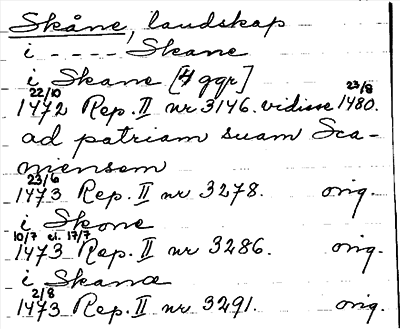 Skåne, landskap
i - - - - Skane
i Skane [4 ggr]
22/10 23/8
1472 Rep. II nr 3146. vidisse 1480.
ad patriam suam Sca-
niensem
23/6
1473 Rep. II nr 3278. orig.
i Skone
10/7 ei. 17/7
1473 Rep. II nr 3286. orig.
i Skanæ
2/8
1473 Rep. II nr 3291. orig.